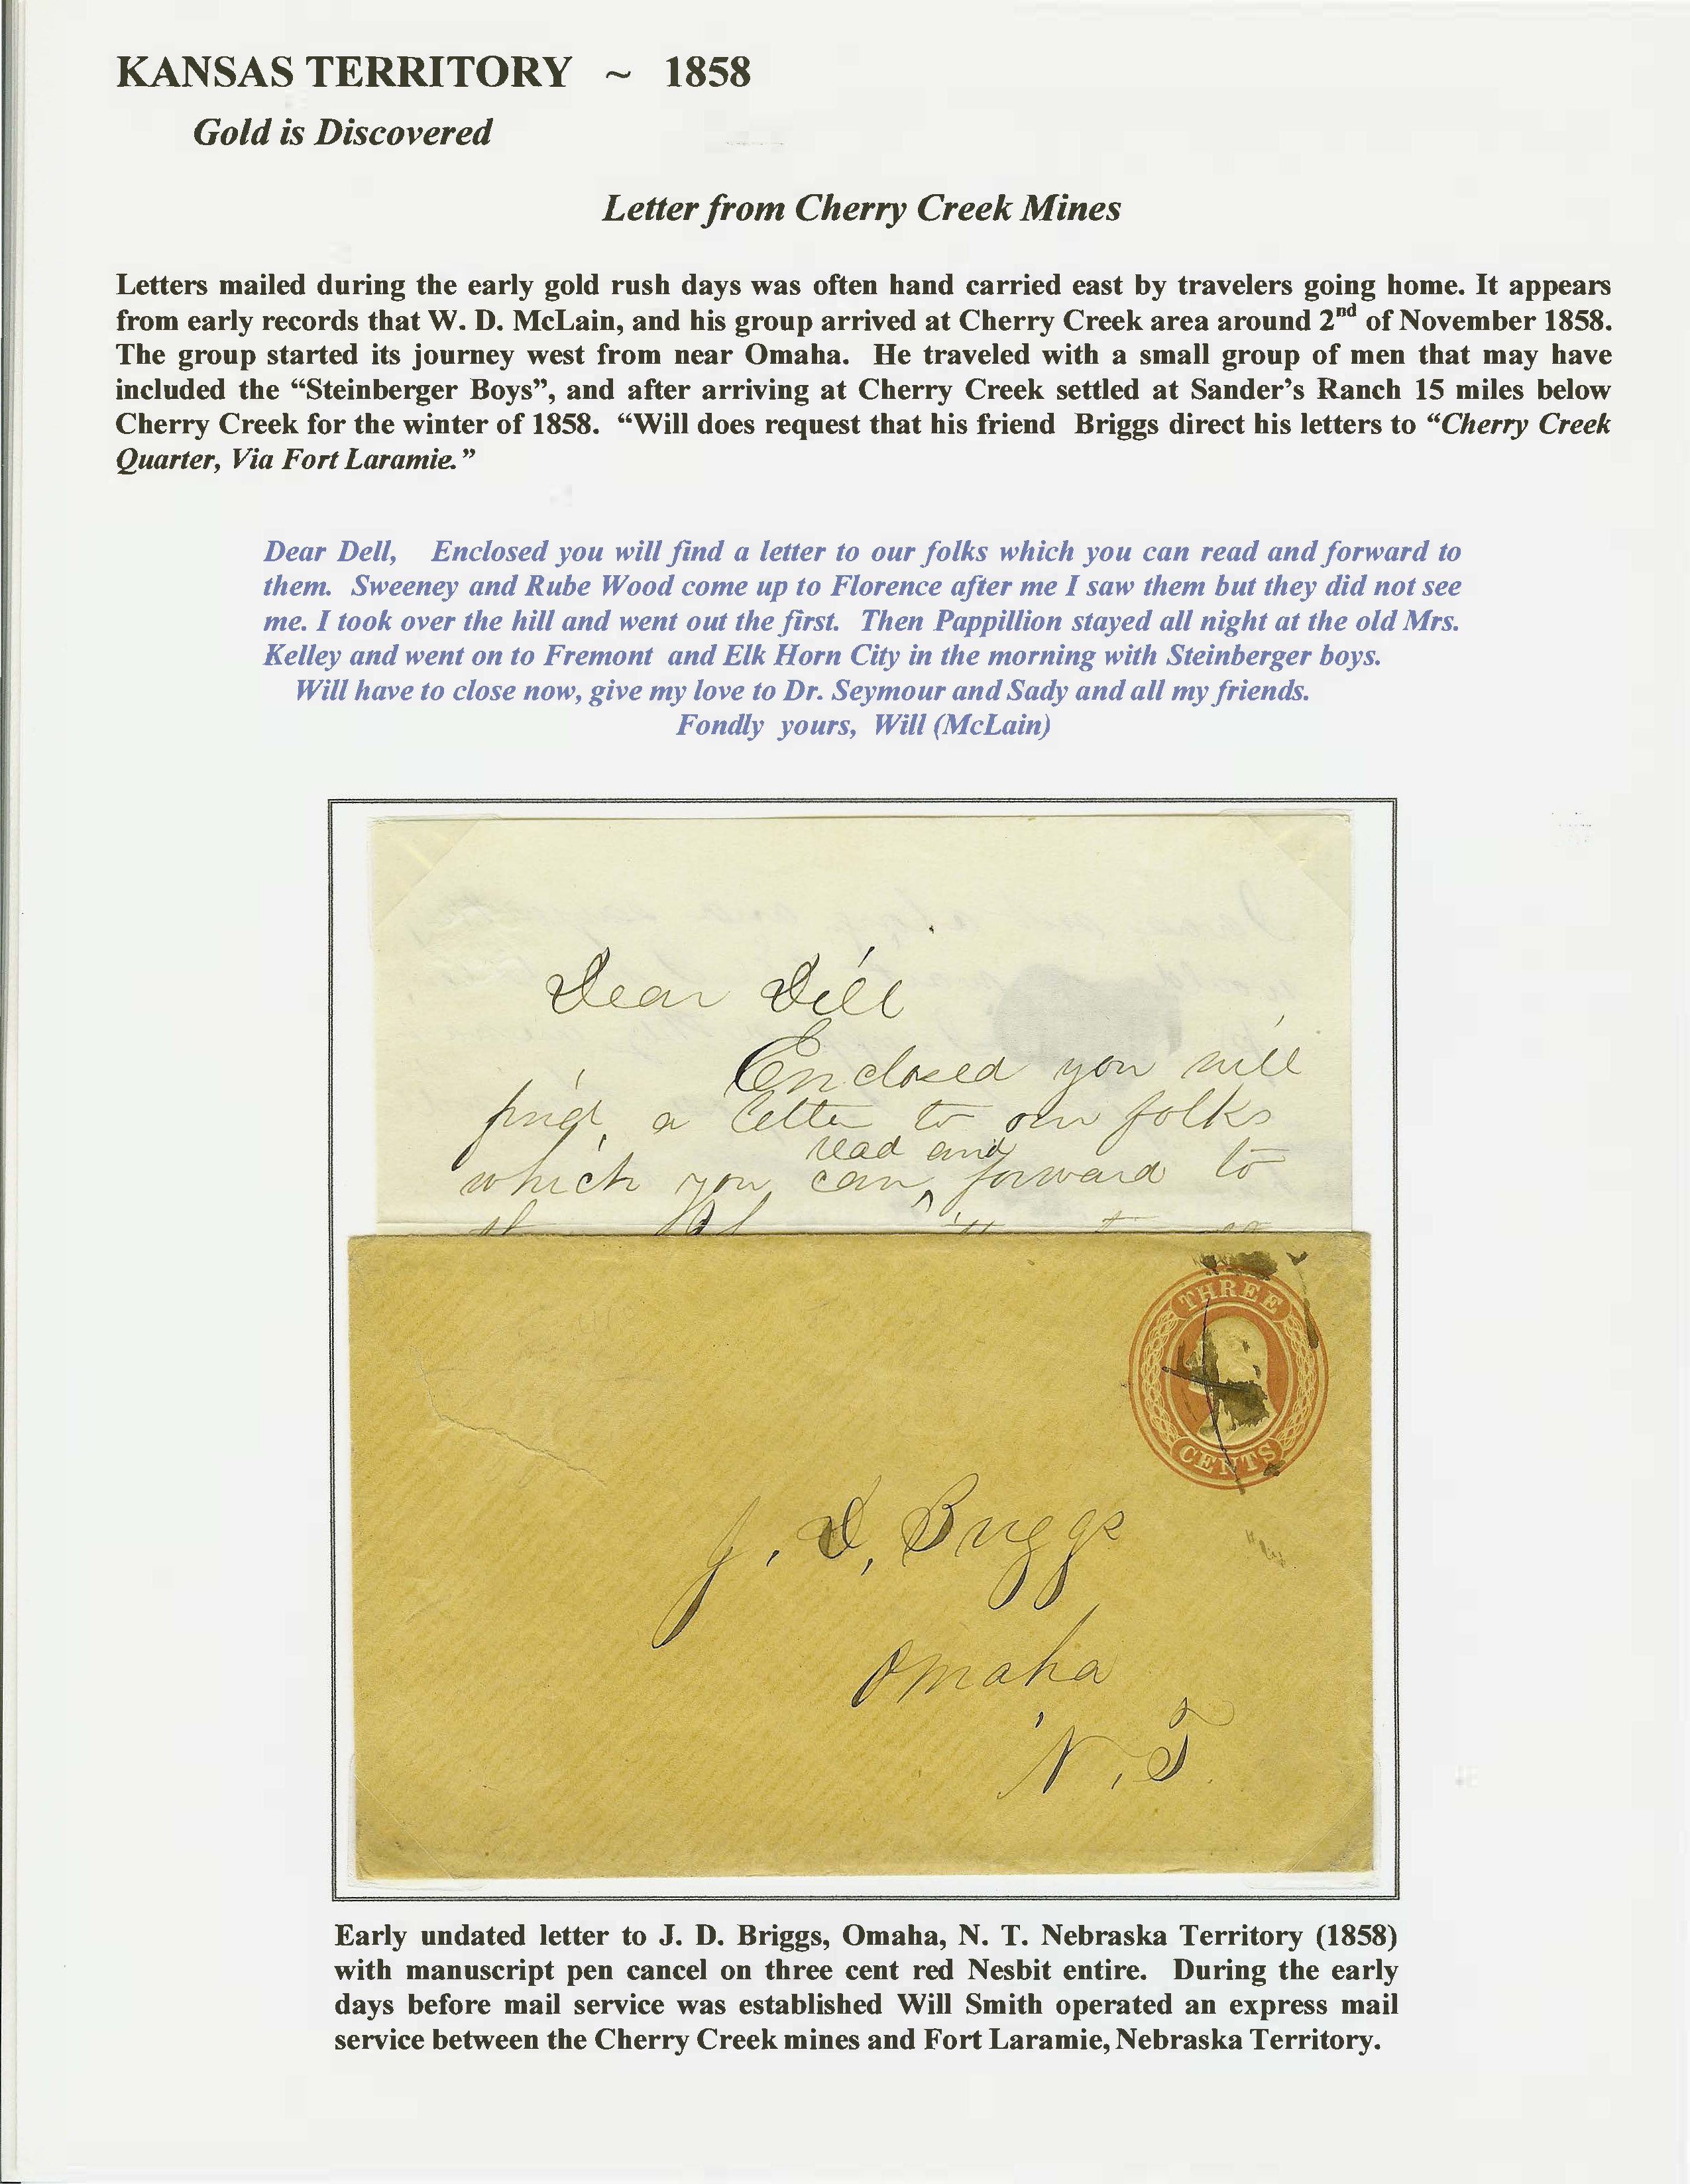 KANSAS TERRITORY ~ 1858
Gold is Discovered
Letter from Cherry Creek Mines
Letters mailed during the early gold rush days was often hand carried east by travelers going home. It appears
from early records that W. D. McLain, and his group arrived at Cherry Creek area around 2nd of November 1858.
The group started its journey west from near Omaha. He traveled with a small group of men that may have
included the “Steinberger Boys”, and after arriving at Cherry Creek settled at Sander’s Ranch 15 miles below
Cherry Creek for the winter of 1858. “Will does request that his friend Briggs direct his letters to “Cherry Creek
Quarter, Via Fort Laramie.”
Dear Dell, Enclosed you will find a letter to our folks which you can read and forward to
them. Sweeney and Rube Wood come up to Florence after me I saw them but they did not see
me. I took over the hill and went out the first. Then Pappillion stayed all night at the old Mrs.
Kelley and went on to Fremont and Elk Horn City in the morning with Steinberger boys.
Will have to close now, give my love to Dr. Seymour and Sady and all my friends.
Fondly yours, Will (McLain)
Dear Dell
Enclosed you will
find a letter to our folks
read and
which you can ^ forward to
THREE
CENTS
J. D. Briggs
Omaha
N. T.
Early undated letter to J. D. Briggs, Omaha, N. T. Nebraska Territory (1858)
with manuscript pen cancel on three cent red Nesbit entire. During the early
days before mail service was established Will Smith operated an express mail
service between the Cherry Creek mines and Fort Laramie, Nebraska Territory.